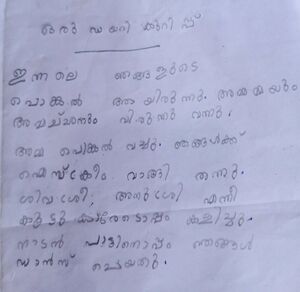 ഒരു ഡയറി കുറിപ്പ്
ഇന്നലെ ഞങ്ങളുടെ
പൊങ്കൽ ആയിരുന്നു. അമ്മമ്മയും
അച്ചച്ചനും വിരുന്നു വന്നു.
അമ്മ പൊങ്കൽ വച്ചു. ഞങ്ങൾക്ക്
ഐസ്ക്രീം വാങ്ങി തന്നു.
ശിവശ്രീ, അനുശ്രീ എന്നീ
കൂട്ടുകാരോടൊപ്പം കളിച്ചു.
നാടൻ പാട്ടിനൊപ്പം ഞങ്ങൾ
ഡാൻസ് ചെയ്തു.